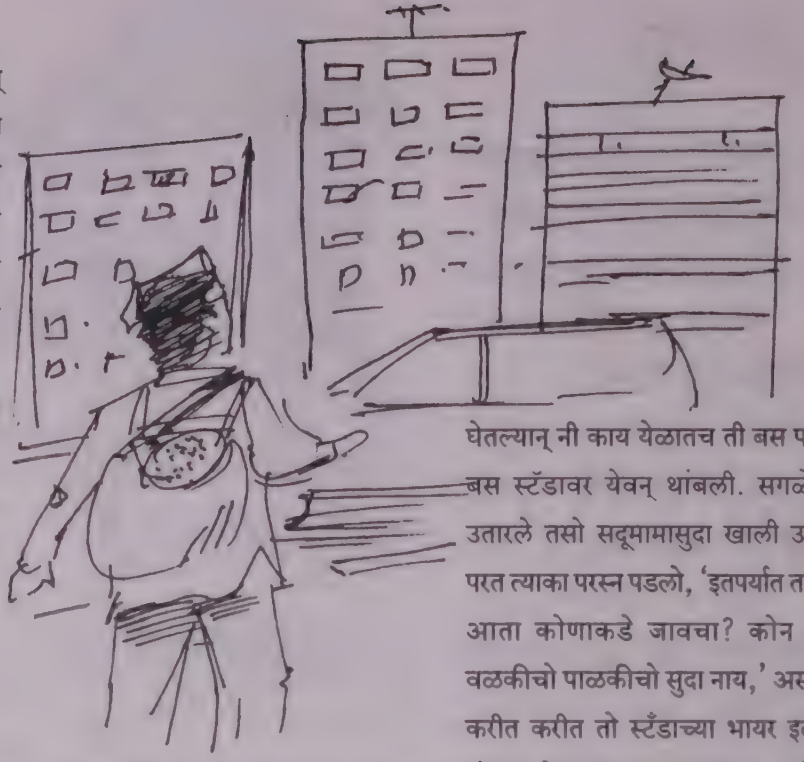 घेतल्यान् नी काय येळातच ती बस प
बस स्टॅडावर येवन् थांबली. सगळे
उतारले तसो सदूमामासुदा खाली उ
परत त्याका परस्न पडलो, 'इतपर्यात त
आता कोणाकडे जावचा? कोन
वळकीचो पाळकीचो सुदा नाय,' अस
करीत करीत तो स्टँडाच्या भायर इ